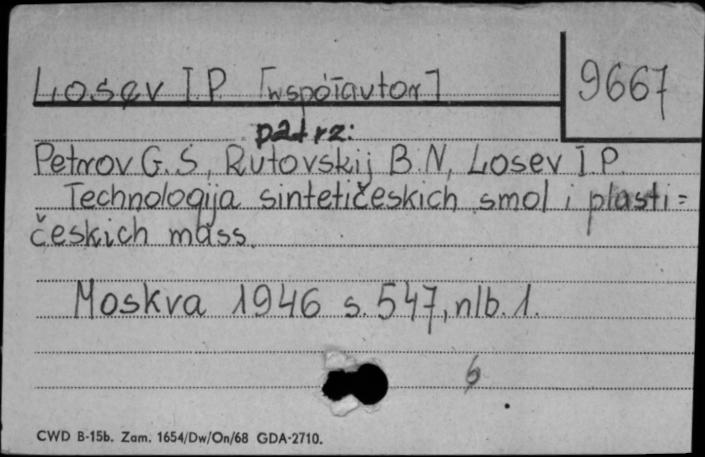 Losev I.P. [współautor] 9667
patrz:
Petrov G.S, Rutovskij B.N, Losev I.P.
Technologija sintetičeskich smol i plasti=
českich mass.
Moskva 1946 s. 547, nlb. 1.
6
CWD B-15b. Zam. 1654/Dw/On/68 GDA-2710.